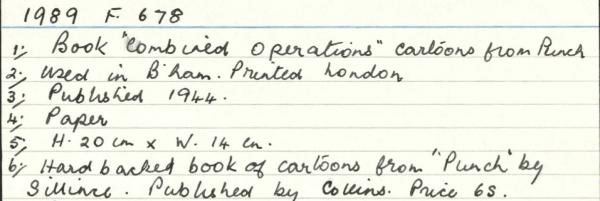 1989 F. 678
1; Book "Combined Operations" cartoons from Punch
2; Used in B'ham. Printed London
3; Published 1944.
4; Paper
5; H. 20 cm x W. 14 cm.
6; Hard backed book of cartoons from "Punch" by
Sillince. Published by Collins. Price 6s.